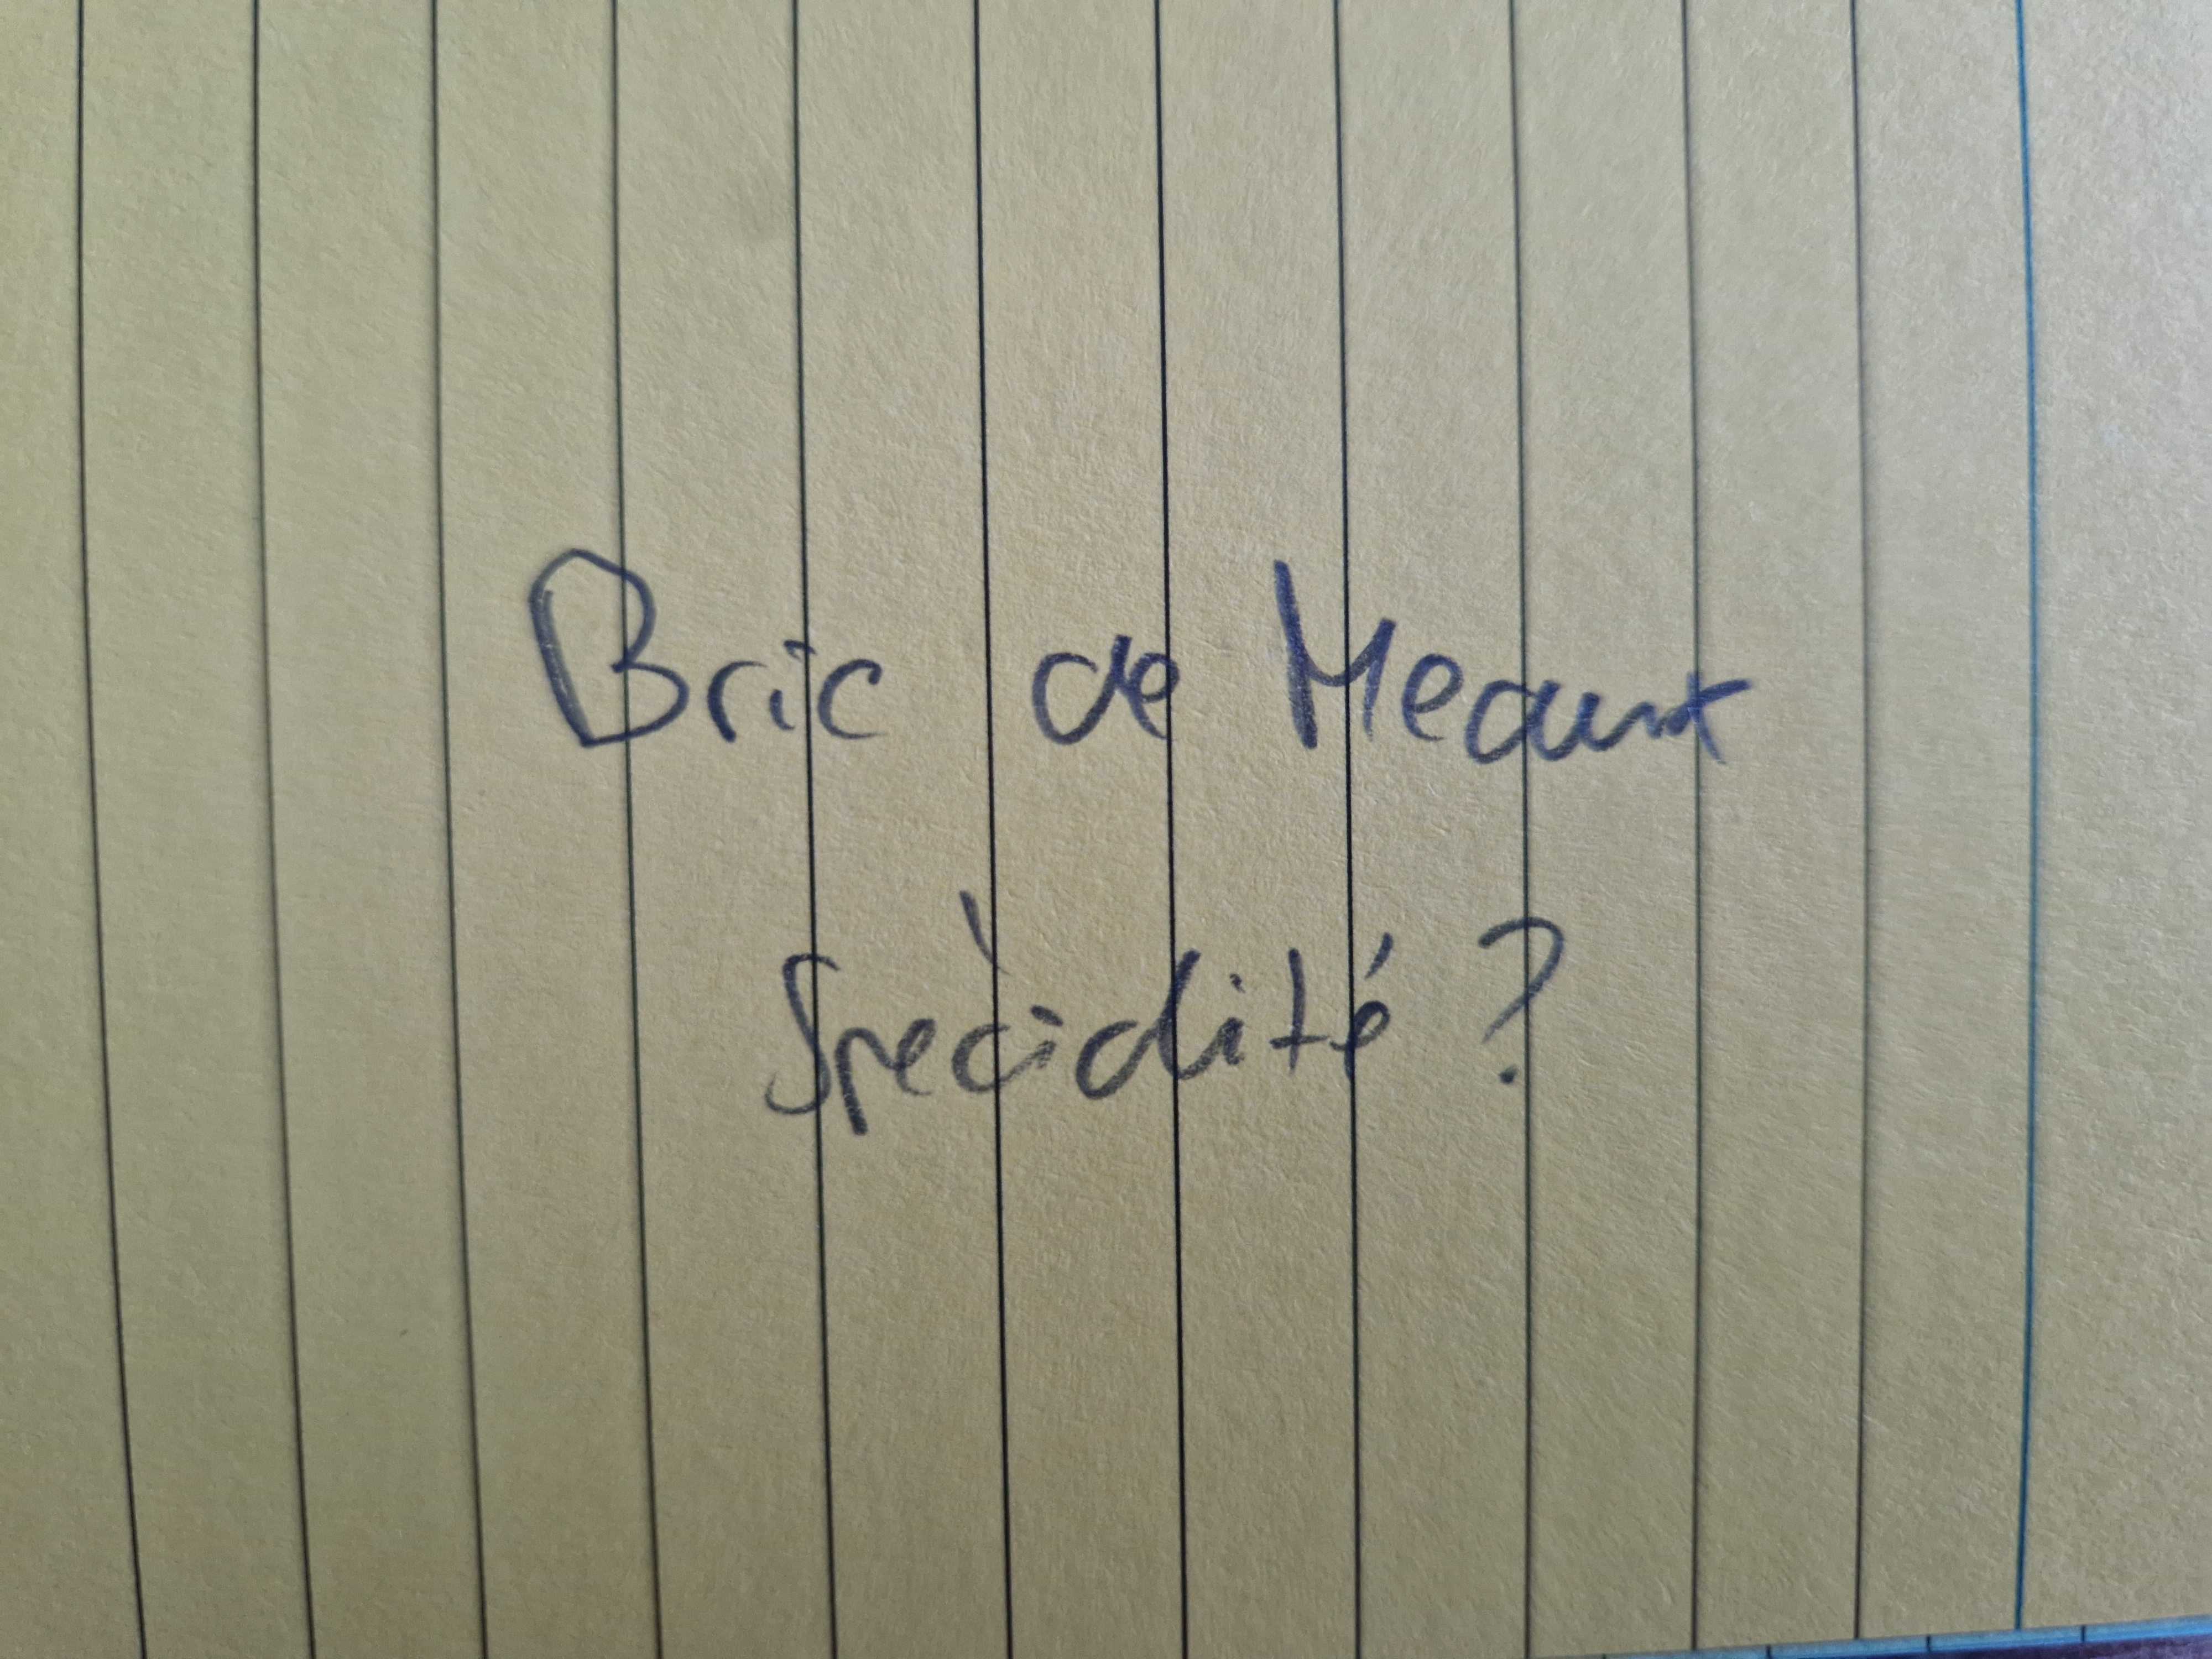 Bric de Meaux
Spècialité ?